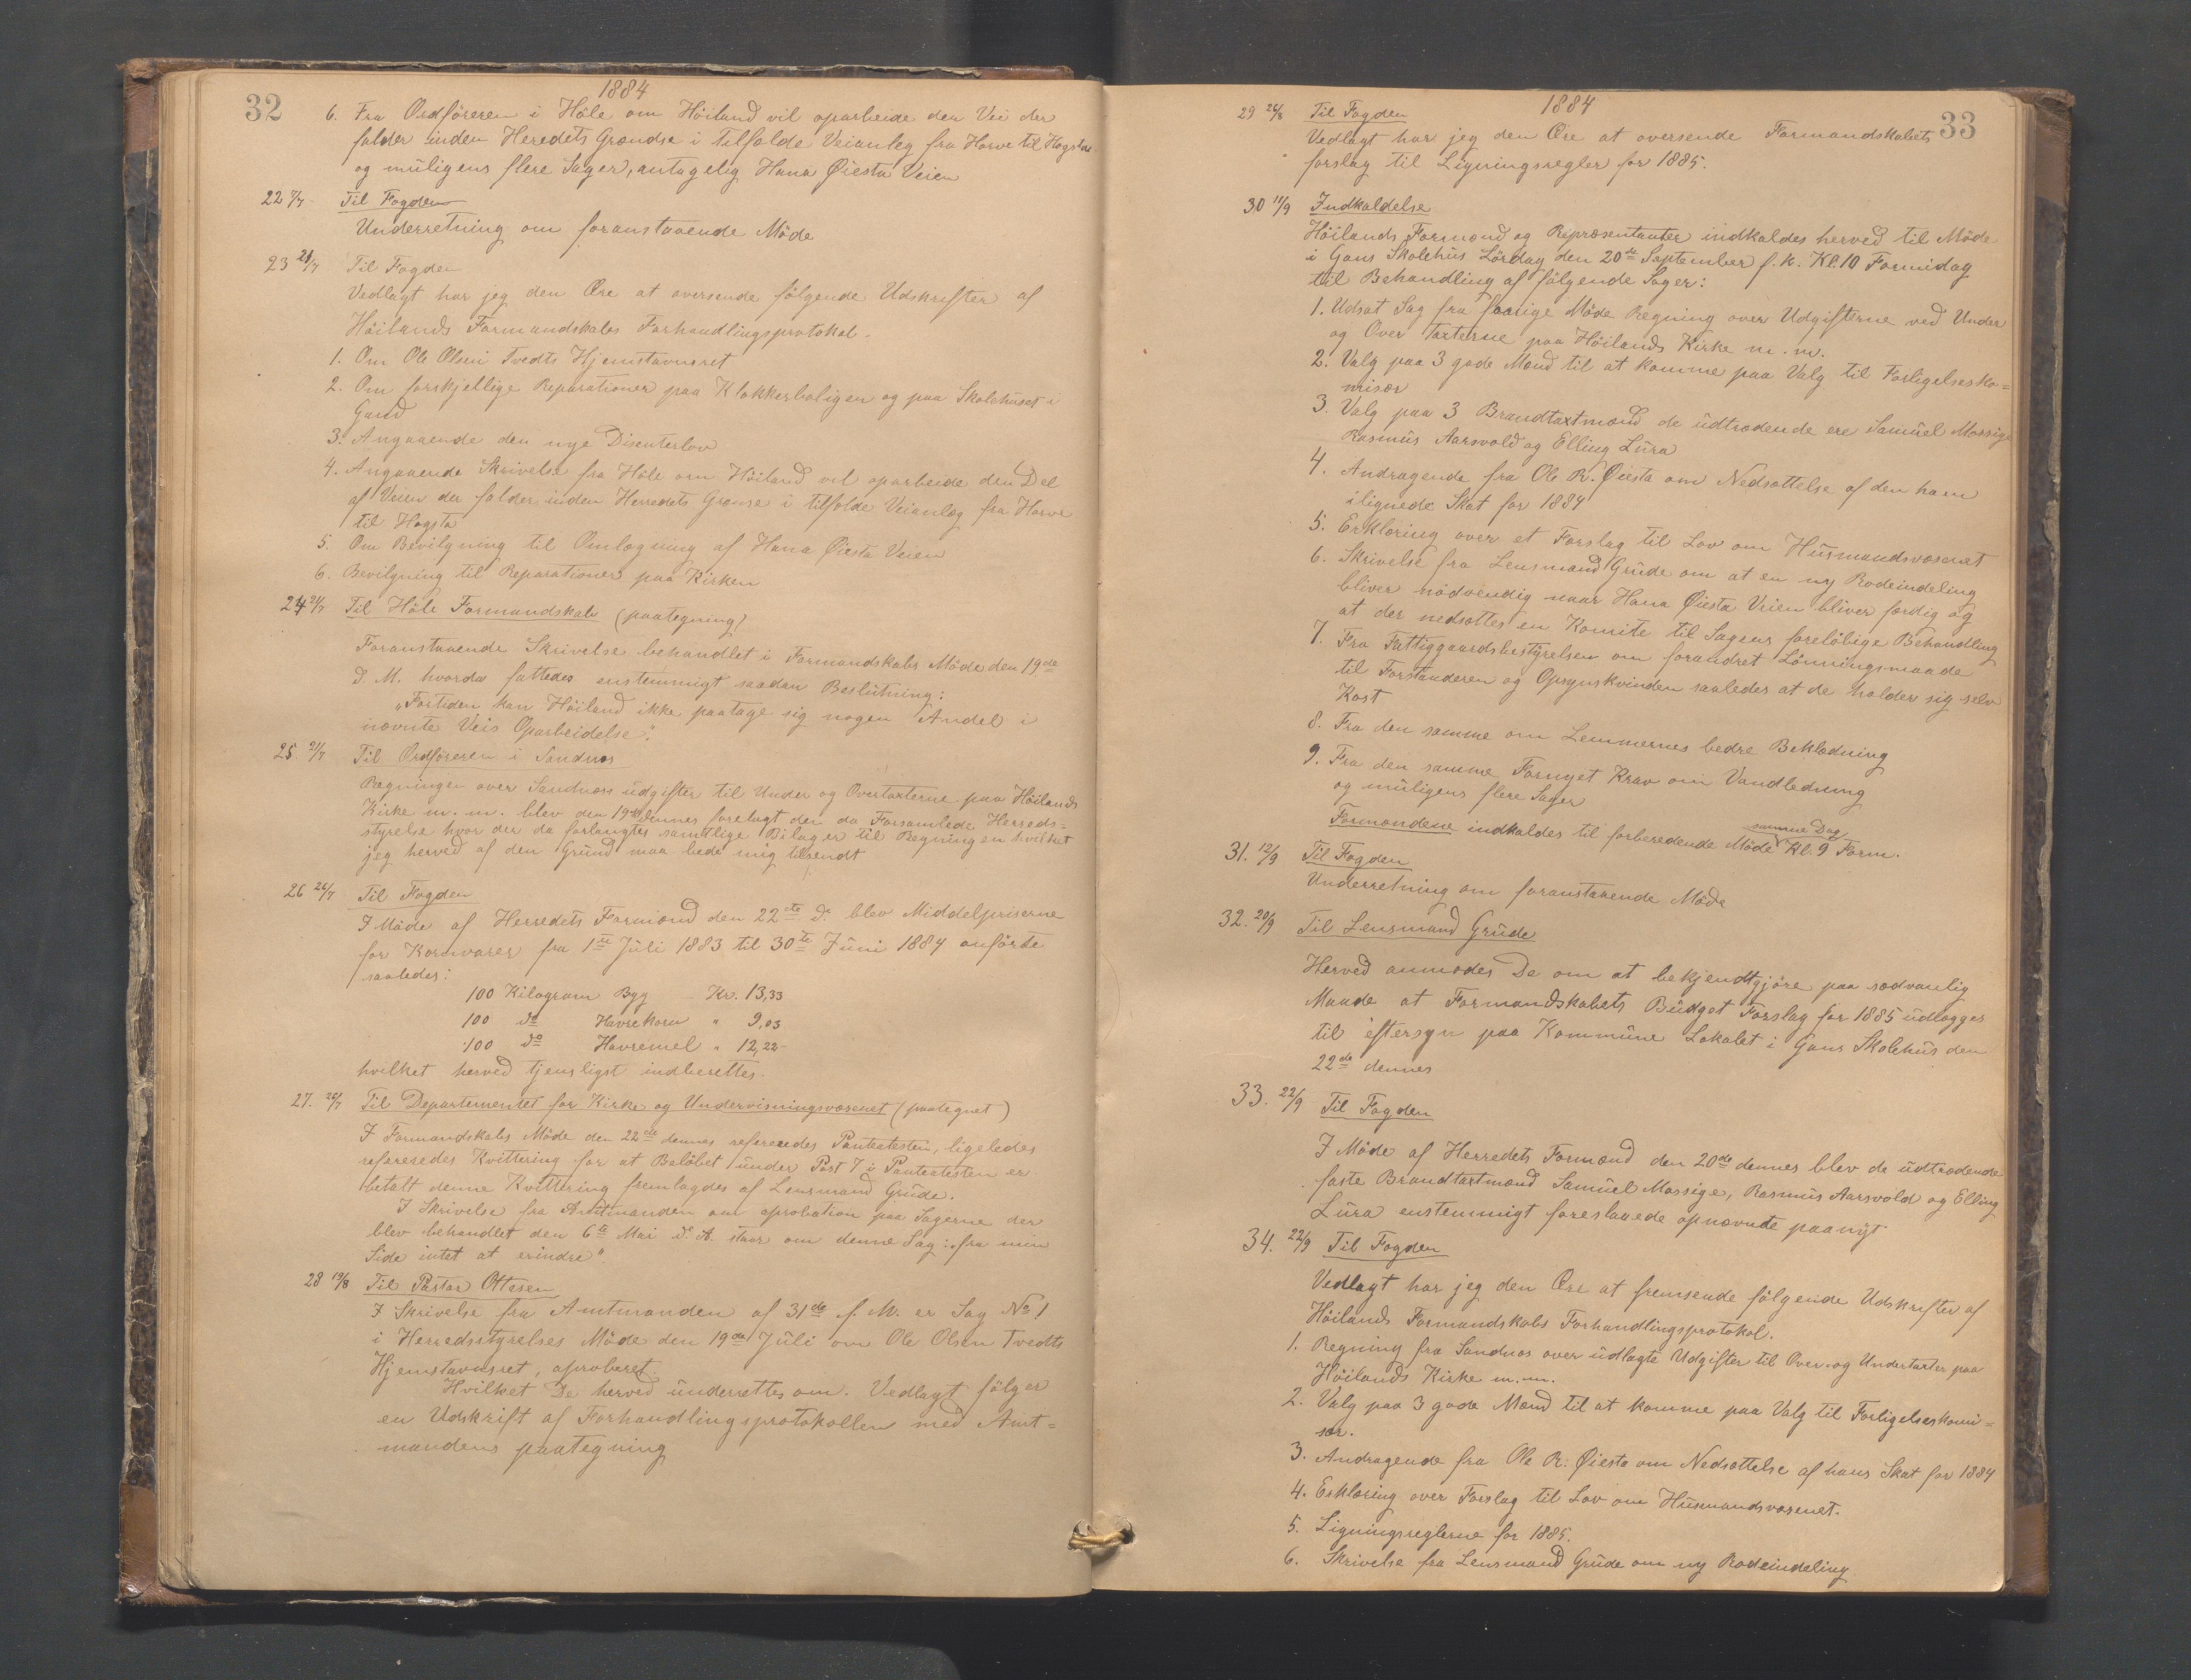 32
1884
6. Fra Ordföreren i Höle om Höiland vil oparbeide den Vei der
falder inden Heredets Grændse i Tilfælde Veianleg fra Horve til Hogstø
og muligens flere Sager, antagelig Hana Øiesta Veien
22 7/7 Til Fogden
Underretning om foranstaaende Möde
23 21/7 Til Fogden
Vedlagt har jeg den Ære at oversende fölgende Udskrifter af
Höilands Formandskabs Forhandlingsprotokol.
1. Om Ole Olsen Tvedts Hjemstavnsret
2. Om forskjellige Reparationer paa Klokkerboligen og paa Skolehuset i
Gand
3. Angaaende den nye Disenterlov
4. Angaaende Skrivelse fra Höle om Höiland vil oparbeide den Del
af Veien der falder inden Herredets Grænse i tilfælde Veianlæg fra Horve
til Hogstø
5. Om Bevilgning til Omlægning af Hana Øiesta Veien
6. Bevilgning til Reparationer paa Kirken
24 21/7 Til Höle Formandskab (paategning)
Foranstaaende Skrivelse behandlet i Formandskabs Möde den 19de
d. M. hvorda fattedes enstemmigt saadan Beslutning:
"Fortiden kan Höiland ikke paatage sig nogen Andel i
nævnte Veis Oparbeidelse".
25. 21/7 Til Ordföreren i Sandnæs
Regningen over Sandnæs udgifter til Under og Overtaxterne paa Höilands
Kirke m. m. blev den 19de dennes forelagt den da Forsamlede Herreds=
styrelse hvor der da forlangtes samtlige Bilager til Regningen hvilket
jeg herved af den Grund maa bede mig tilsendt
26 26/7 Til Fogden
I Möde af Herredets Formænd den 22de ds blev Middelpriserne
for Kornvarer fra 1ste Juli 1883 til 30te Juni 1884 anförte
saaledes:
100 Kilogram Byg Kr. 13,33
100 do Havrekorn " 9,03
100 do Havremel " 12,22
hvilket herved tjensligst indberettes.
27. 26/7 Til Departementet for Kirke og Undervisningsvæsenet (paategnet)
I Formandskabs Möde den 22de dennes refereredes Panteatesten, ligeledes
refereredes Kvittering for at Belöbet under Post 7 i Panteatesten er
betalt denne Kvittering fremlagdes af Lensmand Grude.
I Skrivelse fra Amtmanden om aprobation paa Sagerne der
blev behandlet den 6te Mai d. A. staar om denne Sag: "fra min
Side intet at erindre"
28 19/8 Til Pastor Ottesen
I Skrivelse fra Amtmanden af 31de f. M. er Sag No 1
i Herredsstyrelses Möde den 19de Juli om Ole Olsen Tvedts
Hjemstavnsret, aproberet.
Hvilket De herved underrettes om. Vedlagt fölger
en Udskrift af Forhandlingsprotokollen med Amt=
mandens paategning
33
1884
29 26/8 Til Fogden
Vedlagt har jeg den Ære at oversende Formandskabets
forslag til Ligningsregler for 1885.
30 11/9 Indkaldelse
Höilands Formænd og Repræsentanter indkaldes herved til Möde
i Gans Skolehus Lördag den 20de September f. k. Kl. 10 Formidag
til Behandling af fölgende Sager:
1. Udsat Sag fra forrige Möde Regning over Udgifterne ved Under
og Over Taxterne paa Höilands Kirke m. m.
2. Valg paa 3 gode Mænd til at komme paa Valg til Forligelsesko=
misær
3. Valg paa 3 Brandtaxtmænd de udtrædende ere Samuel Mossige
Rasmus Aarsvold og Elling Lura
4. Andragende fra Ole R. Øiesta om Nedsættelse af den ham
ilignede Skat for 1884
5. Erklæring over et Forslag til Lov om Husmandsvæsenet
6. Skrivelse fra Lensmand Grude om at en ny Rodeindeling
bliver nödvendig naar Hana Øiesta Veien bliver færdig og
at der nedsættes en Komite til Sagens forelöbige Behandling
7. Fra Fattiggaardsbestyrelsen om forandret Lönningsmaade
til Forstanderen og Opsynskvinden saaledes at de holder sig selv
Kost
8. Fra den samme om Lemmernes bedre Beklædning
9. Fra den samme Fornyet Krav om Vandledning
og muligens flere Sager
Formændene indkaldes til forberedende Möde samme Dag Kl. 9 Form.
31. 12/9 Til Fogden
Underretning om foranstaaende Möde
32. 20/9 Til Lensmand Grude
Herved anmodes De om at bekjendtgjöre paa sædvanlig
Maade at Formandskabets Budget Forslag for 1885 udlægges
til eftersyn paa Kommune Lokalet i Gans Skolehus den
22de dennes
33. 22/9 Til Fogden
I Möde af Herredets Formænd den 20de dennes blev de udtrædende
faste Brandtaxtmænd Samuel Mossige, Rasmus Aarsvold og Elling
Lura enstemmigt foreslaaede opnævnte paanyt
34. 22/9 Til Fogden
Vedlagt har jeg den Ære at fremsende fölgende Udskrifter af
Höilands Formandskabs Forhandlingsprotokol.
1. Regning fra Sandnæs over udlagte Udgifter til Over og Undertaxter paa
Höilands Kirke m. m.
2. Valg paa 3 gode Mænd til at komme paa Valg til Forligelseskomi=
sær.
3. Andragende fra Ole R. Øiesta om Nedsættelse af hans Skat for 1884
4. Erklæring over Forslag til Lov om Husmandsvæsenet.
5. Ligningsreglerne for 1885.
6. Skrivelse fra Lensmand Grude om ny Rodeindeling